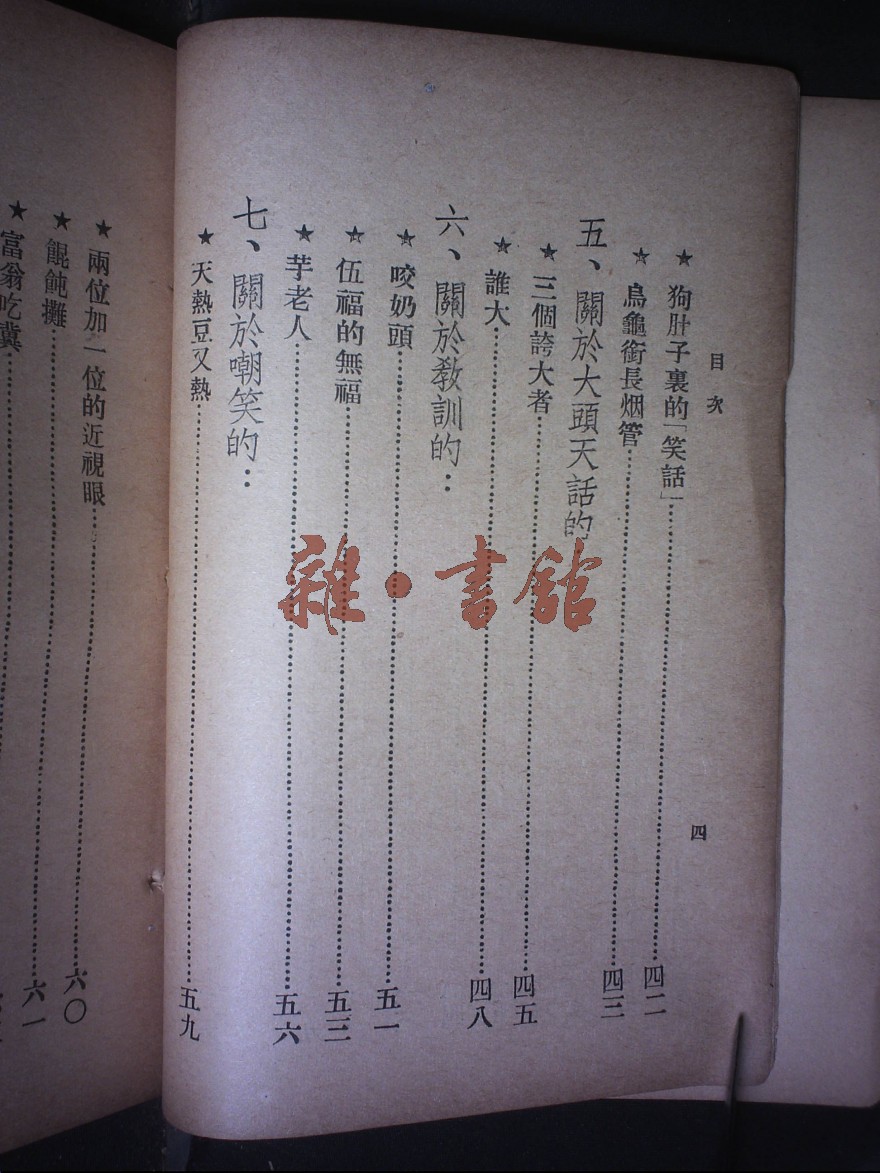 目次
四
★狗肚子裏的「笑話」……四二
★烏龜銜長烟管……四三
五、關於大頭天話的
★三個誇大者……四五
★誰大……四八
六、關於教訓的：
★咬奶頭……五一
★伍福的無福……五三
★芋老人……五六
七、關於嘲笑的：
★天熱豆又熱……五九
★兩位加一位的近視眼……六〇
★餛飩攤……六一
★富翁吃糞……
雜·書館